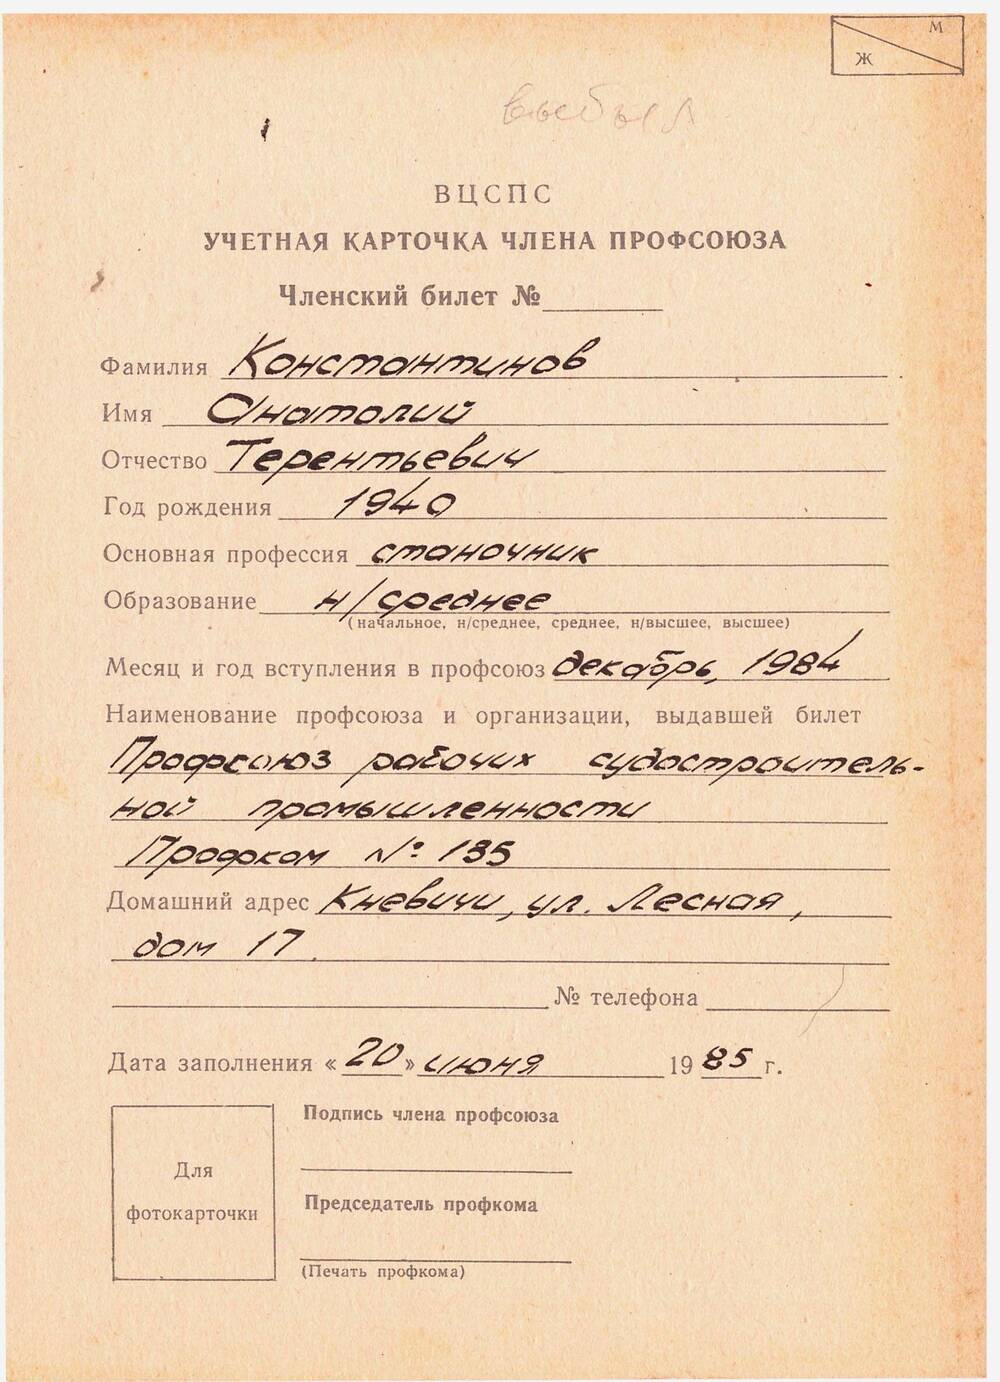 М
Ж
выбыл
ВЦСПС
УЧЕТНАЯ КАРТОЧКА ЧЛЕНА ПРОФСОЮЗА
Членский билет №
Фамилия Константинов
Имя Анатолий
Отчество Терентьевич
Год рождения 1940
Основная профессия станочник
Образование н/среднее
(начальное, н/среднее, среднее, н/высшее, высшее)
Месяц и год вступления в профсоюз декабрь, 1984
Наименование профсоюза и организации, выдавшей билет
Профсоюз рабочих судостроитель-
ной промышленности
Профком № 185
Домашний адрес Кневичи, ул. Лесная,
дом 17
№ телефона
Дата заполнения «20» июня 1985 г.
Подпись члена профсоюза
Для
фотокарточки
Председатель профкома
(Печать профкома)